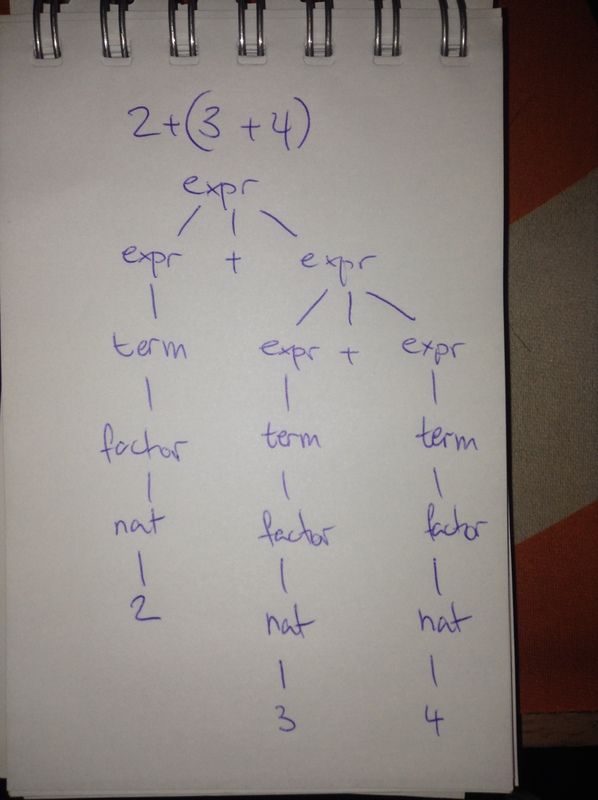 2+(3 + 4)
expr
expr + expr
term expr + expr
factor term term
nat factor factor
2 nat nat
3 4